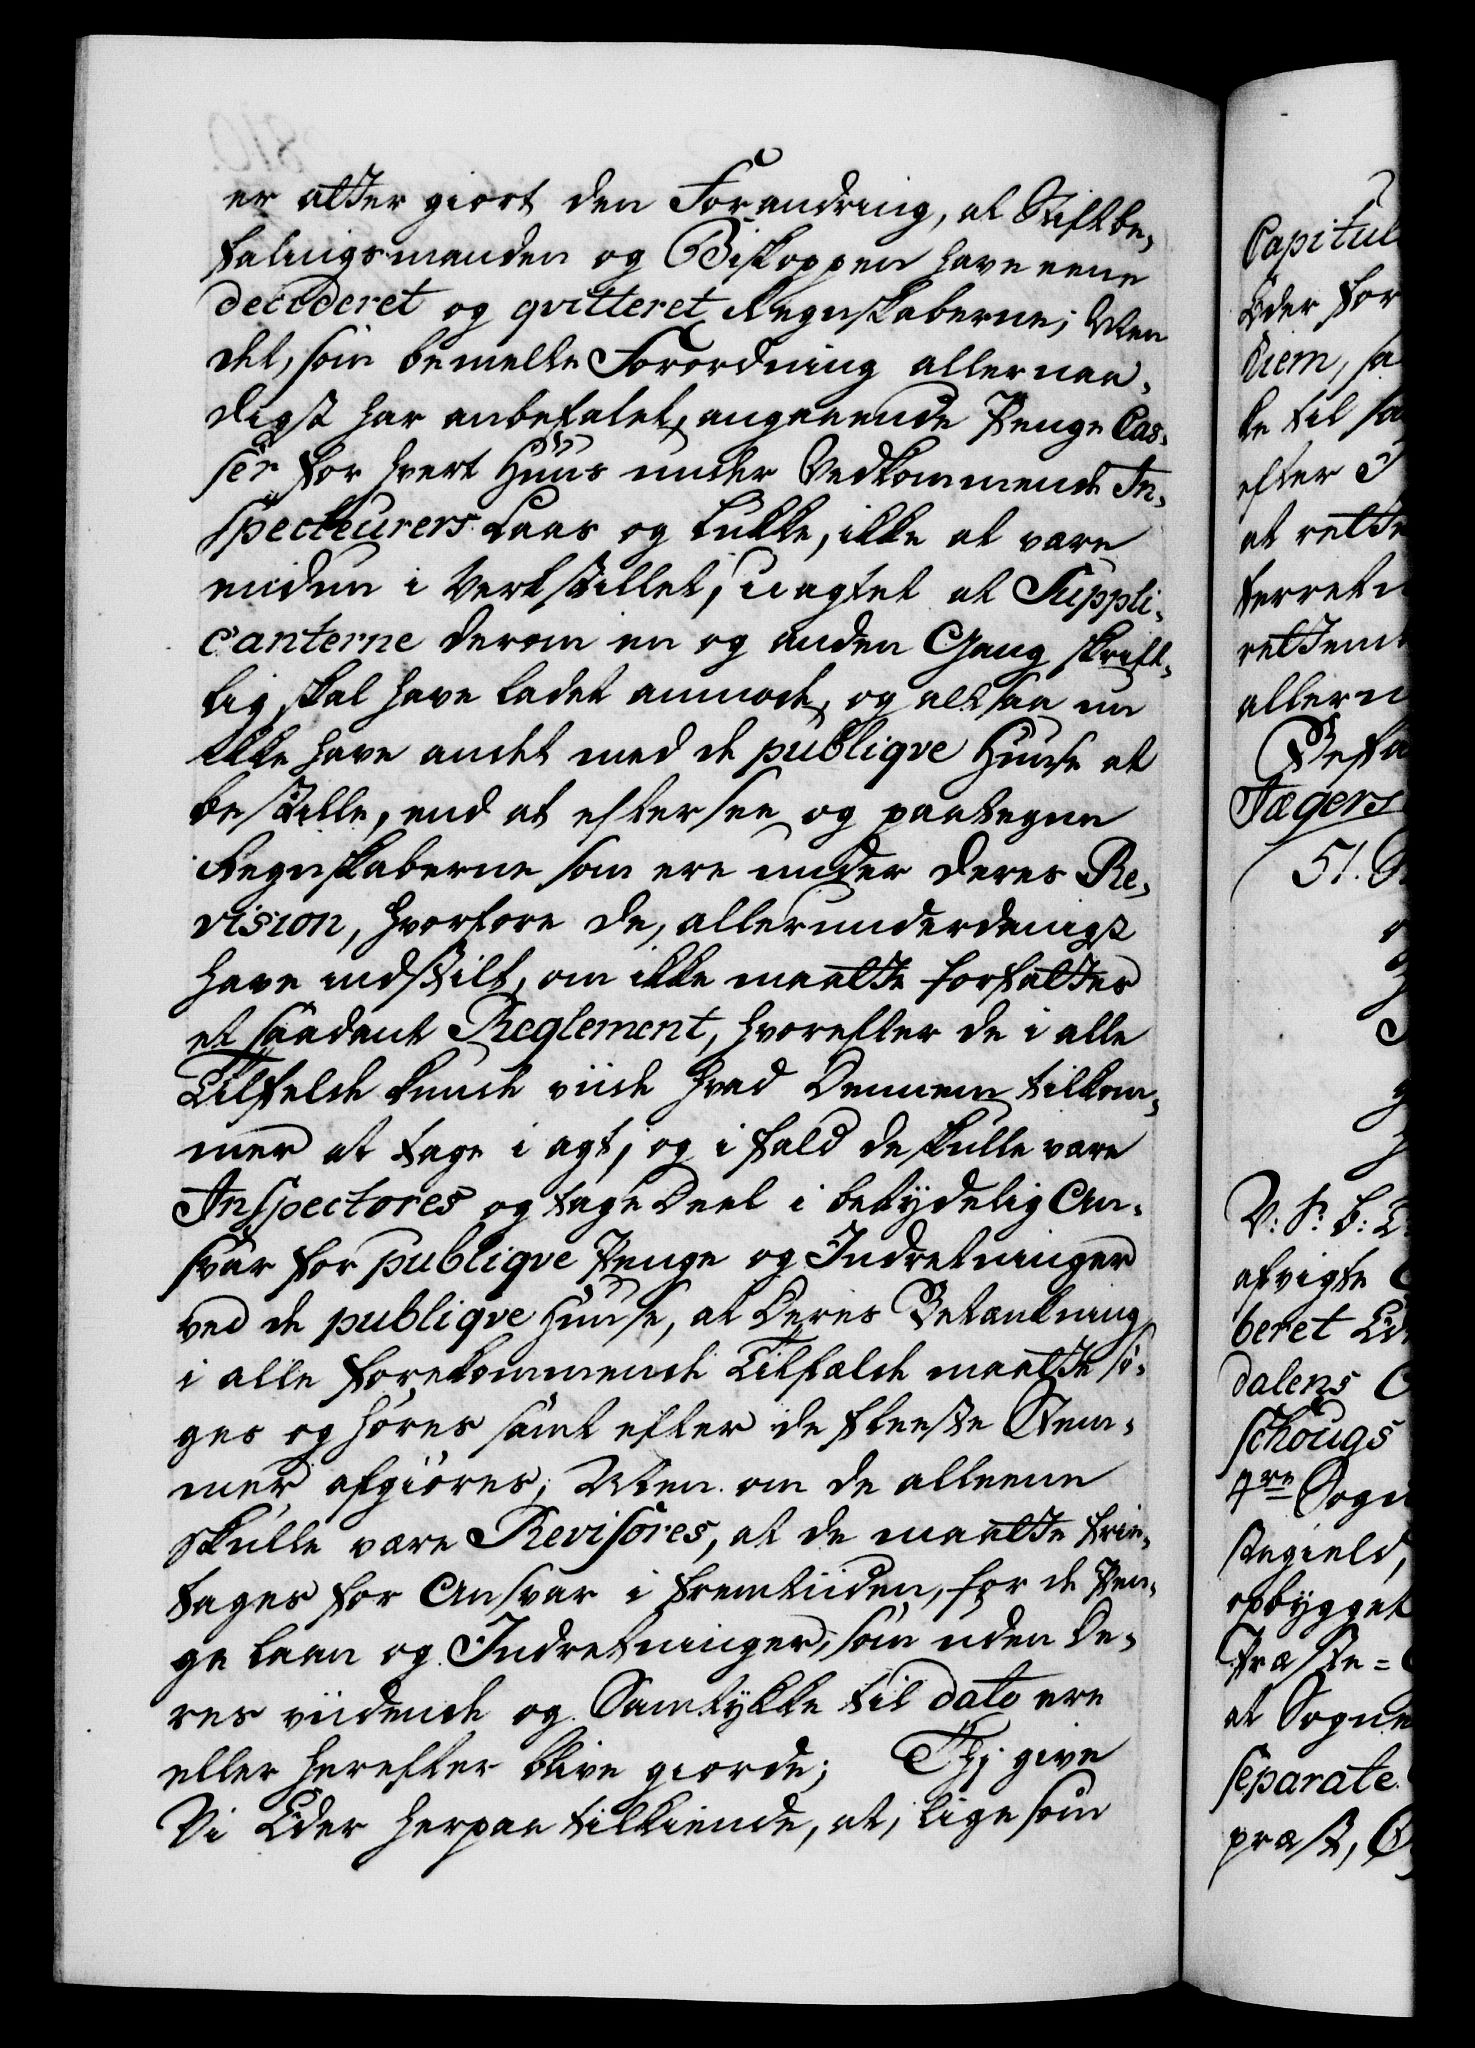 er atter giort den Forandring, at Stiftbe,
falingsmanden og Biskoppen have eene
decideret og qvitteret Regnskaberne; Men
det, som bemelte Forordning allernaa,
digst har anbefalet, angaaende Penge Cas,
ser for hvert Huus under Vedkommende In,
specteurers Laas og Lukke, ikke at være
enden i Verkstillet, uagtet at Suppli,
canterne derom en og anden Gang skrift,
lig skal have ladet anmode, og altsaa nu
ikke have andet med de publiqve Huuse at
bestille, end at eftersee og paategne
Regnskaberne som ere under deres Re,
vision, hvorfore de, allerunderdanigst
have indstilt, om ikke maatte forfattes
et saadant Reglement, hvorefter de i alle
Tilfælde kunde viide hvad Dennem tilkom,
mer at tage i agt, og i fald de skulle være
Inspectores og tage Deel i betydelig An,
svar for publiqve Penge og Indretninger
ved de publiqve Huuse, at Deres Betænkning
i alle forekommende Tilfælde maatte sø,
ges og høres samt efter de fleeste Stem,
mer afgiøres; Men om de alleene
skulle være Revisores, at de maatte frie,
tages for Ansvar i fremtiiden, for de Pen,
ge laan og Indretninger, som uden De,
res viidende og Samtykke til dato ere
eller herefter blive giorde; Thi give
Vi Eder herpaa tilkiende, at, lige som
Capitul
Eder for
diem, sa
de til sa
efter I
at rette
ferretn
rettem
allern
Befa
Jægers
51. S
V: S: b: T
afvigte
beret Ed
dalens
schougs
4re Sogn
stegield,
opbygget
Præste=
at Sogne
separate
præst,